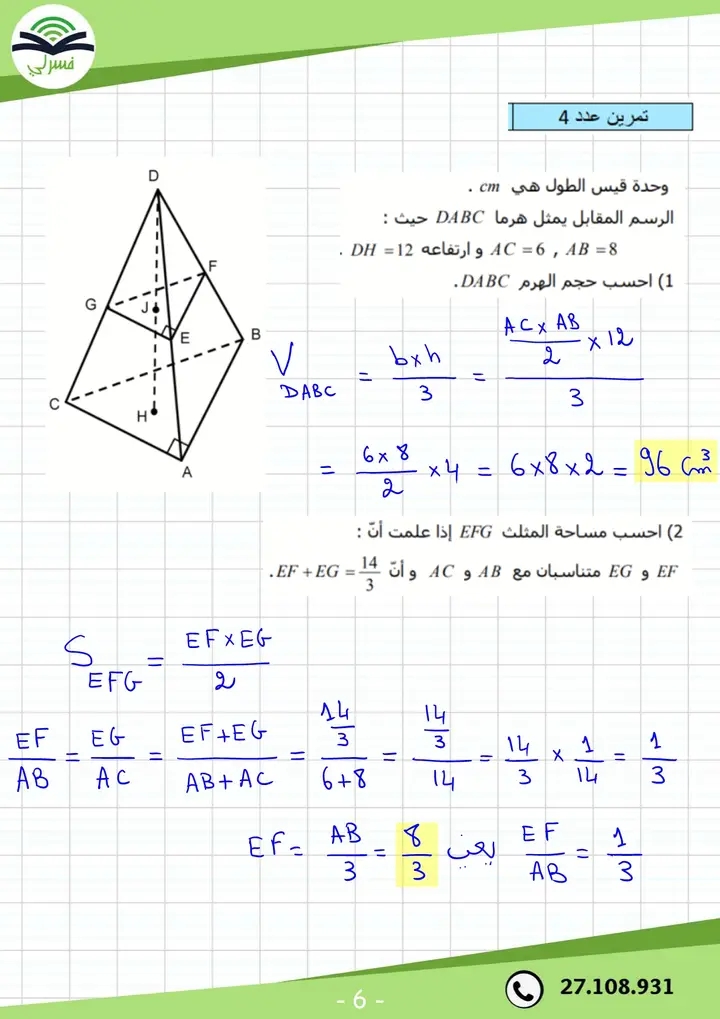 فسرلي
تمرين عدد 4
وحدة قيس الطول هي cm .
الرسم المقابل يمثل هرما DABC حيث :
AB =8 , AC =6 و ارتفاعه DH =12 .
1) احسب حجم الهرم DABC.
D
F
G
J
E
B
C
H
A
V DABC = b×h / 3 = (AC × AB / 2 × 12) / 3
= 6×8 / 2 ×4 = 6×8×2 = 96 cm³
2) احسب مساحة المثلث EFG إذا علمت أنّ :
EF و EG متناسبان مع AB و AC و أنّ EF + EG = 14/3 .
S EFG = EF×EG / 2
EF/AB = EG/AC = EF+EG / AB+AC = (14/3) / 6+8 = (14/3) / 14 = 14/3 × 1/14 = 1/3
EF = AB/3 = 8/3 يعني EF/AB = 1/3
27.108.931
- 6 -